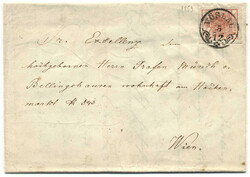 Sr. Exzellenz dem
hochgebornen Herrn Grafen Münch v.
Bellingshausen wohnhaft am
markt № 940
Wien.